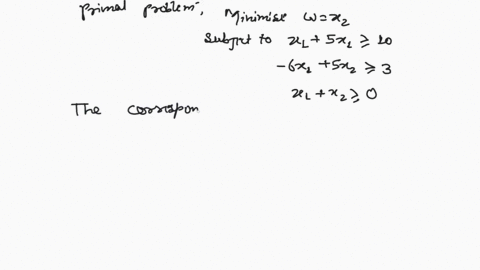 primal problem, Minimise ω = x₂
Subject to x₁ + 5x₂ ≥ 10
-6x₁ + 5x₂ ≥ 3
x₁ + x₂ ≥ 0
The correspon